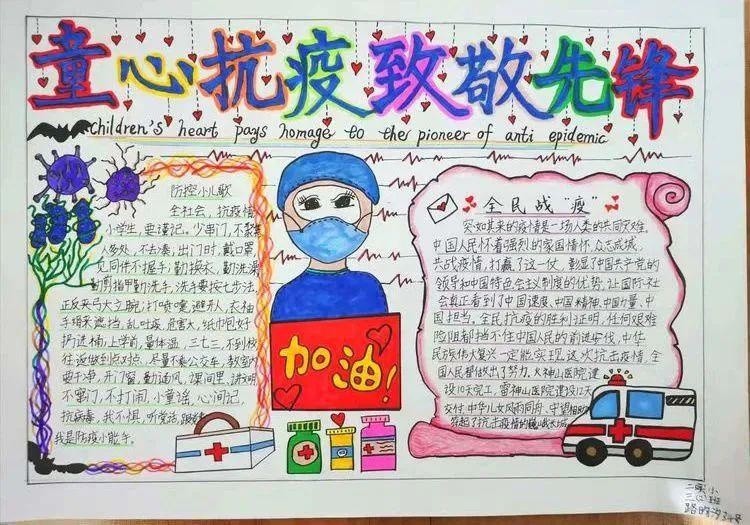 童心抗疫致敬先锋
children's heart pays homage to the pioneer of anti epidemic
防控小儿歌
全社会,抗疫情
小学生,要谨记,少串门,不聚集
人多处,不去凑;出门时,戴口罩
见同伴不握手;勤换衣,勤洗澡
勤剪指甲勤洗手,洗手要按七步法,
正反夹弓大立腕;打喷嚏,避开人,衣袖
手绢来遮挡,乱吐痰,危害大,纸巾包好
扔进桶,上学前,量体温,三七三,不到校
往返做到点对点,尽量不乘公交车,教室内
要干净,开门窗,勤通风,课间里,讲文明
不串门,不打闹,小童谣,心间记,
抗病毒,我不惧,听党话,跟党走
我是防疫小能手。
加油!
全民战"疫"
突如其来的疫情是一场人类的共同灾难。
中国人民怀着强烈的家国情怀,众志成城,
共战疫情,打赢了这一仗,彰显了中国共产党的
领导和中国特色社会主义制度的优势,让国际社
会真正看到了中国速度、中国精神、中国力量、中
国担当。全民抗疫的胜利证明,任何艰难
险阻都挡不住中国人民的前进步伐,中华
民族伟大复兴一定能实现。这次抗击疫情,全
国人民都做出了努力,火神山医院建
设10天完工,雷神山医院建设12天
交付,中华儿女风雨同舟、守望相助
筑起了抗击疫情的巍峨长城
二实小
三(2)班